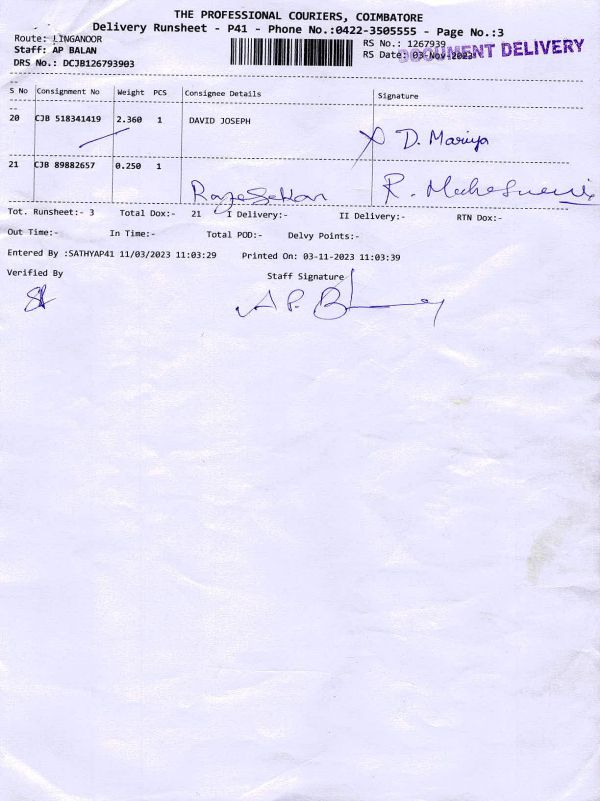 THE PROFESSIONAL COURIERS, COIMBATORE
Delivery Runsheet - P41 - Phone No.:0422-3505555 - Page No.:3
Route: LINGANOOR
RS No.: 1267939
DOCUMENT DELIVERY
Staff: AP BALAN
RS Date: 03-Nov-2023
DRS No.: DCJB126793903
S No Consignment No Weight PCS Consignee Details Signature
20 CJB 518341419 2.360 1 DAVID JOSEPH
D. Mariya
21 CJB 89882657 0.250 1
R.
Tot. Runsheet:- 3 Total Dox:- 21 I Delivery:- II Delivery:- RTN Dox:-
Out Time:- In Time:- Total POD:- Delvy Points:-
Entered By :SATHYAP41 11/03/2023 11:03:29 Printed On: 03-11-2023 11:03:39
Verified By Staff Signature
A P.